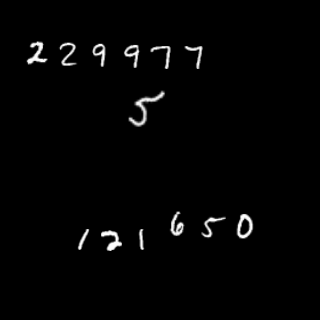 229977
5
121650